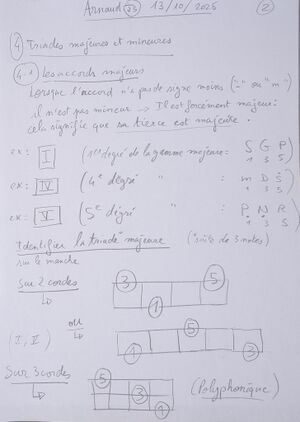 Arnaud 13/10/2025 ②
④ Triades majeures et mineures
4-1 Les accords majeurs
Lorsque l'accord n'a pas de signe moins ("-" ou "m")
il n'est pas mineur → Il est forcément majeur:
cela signifie que sa tierce est majeure.
ex: I (1er degré de la gamme majeure: S G P
1 3 5
ex: IV (4e degré " " : m D S
1 3 5
ex: V (5e degré " " : P N R
1 3 5
Identifier la triade majeure (*suite de 3 notes)
sur le manche
Sur 2 cordes
3 5
1
(I, V) ou
5
1 3
Sur 3 cordes
5
3
1
(Polyphonique)